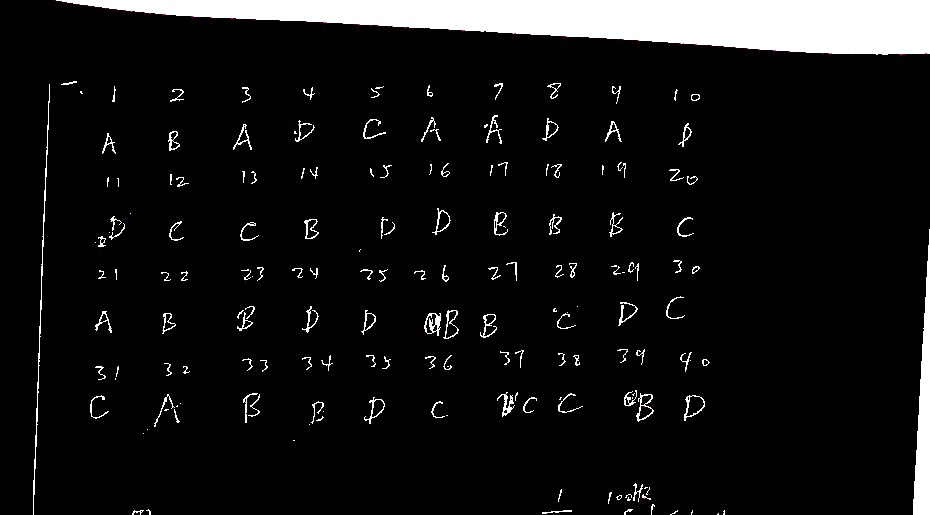 一. 1 2 3 4 5 6 7 8 9 10
A B A D C A A D A D
11 12 13 14 15 16 17 18 19 20
D C C B D D B B B C
21 22 23 24 25 26 27 28 29 30
A B B D D B B C D C
31 32 33 34 35 36 37 38 39 40
C A B B D C C C B D
1 100Hz